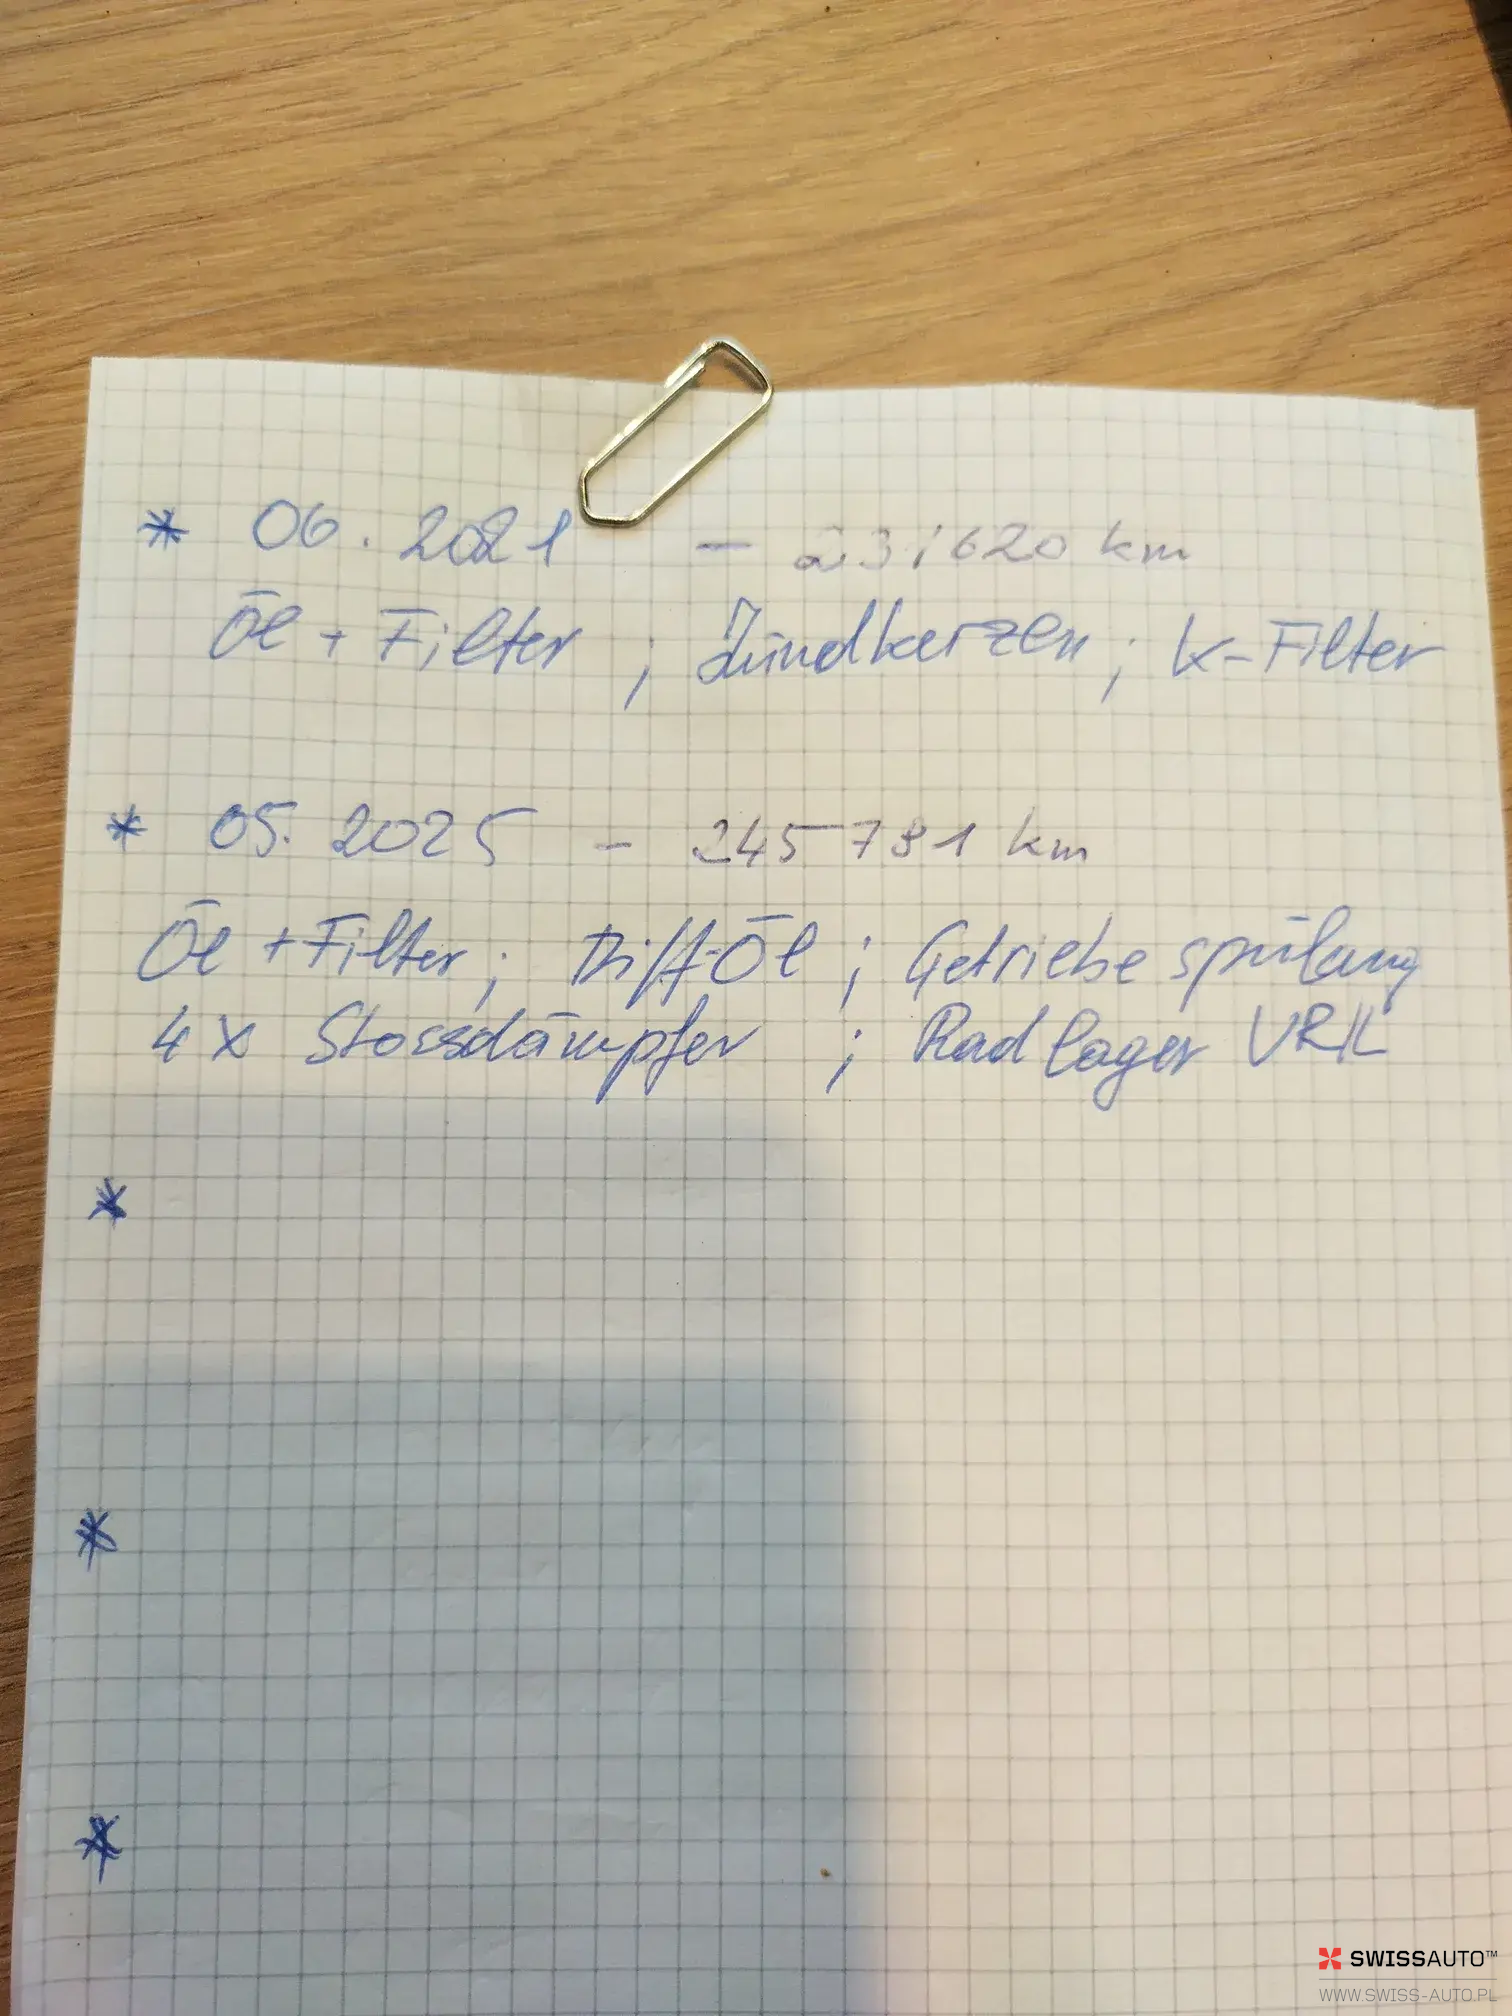 * 06.2021 - 231620 km
Öl + Filter ; Zündkerzen ; K-Filter
* 05.2025 - 245791 km
Öl + Filter ; Diff-Öl ; Getriebe spülung
4x Stossdämpfer ; Radlager VR/L
*
*
*
SWISSAUTO™
WWW.SWISS-AUTO.PL